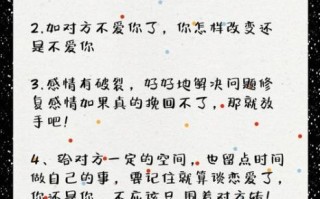 2.加对方不爱你了，你怎样改变还
是不爱你
3.感情有破裂，好好地解决问题修
复感情如果真的挽回不了，那就放
手吧！
4、给对方一定的空间，也留点时间
做自己的事，要记住就算谈恋爱了，
你还是你，不应该只围着对方转！